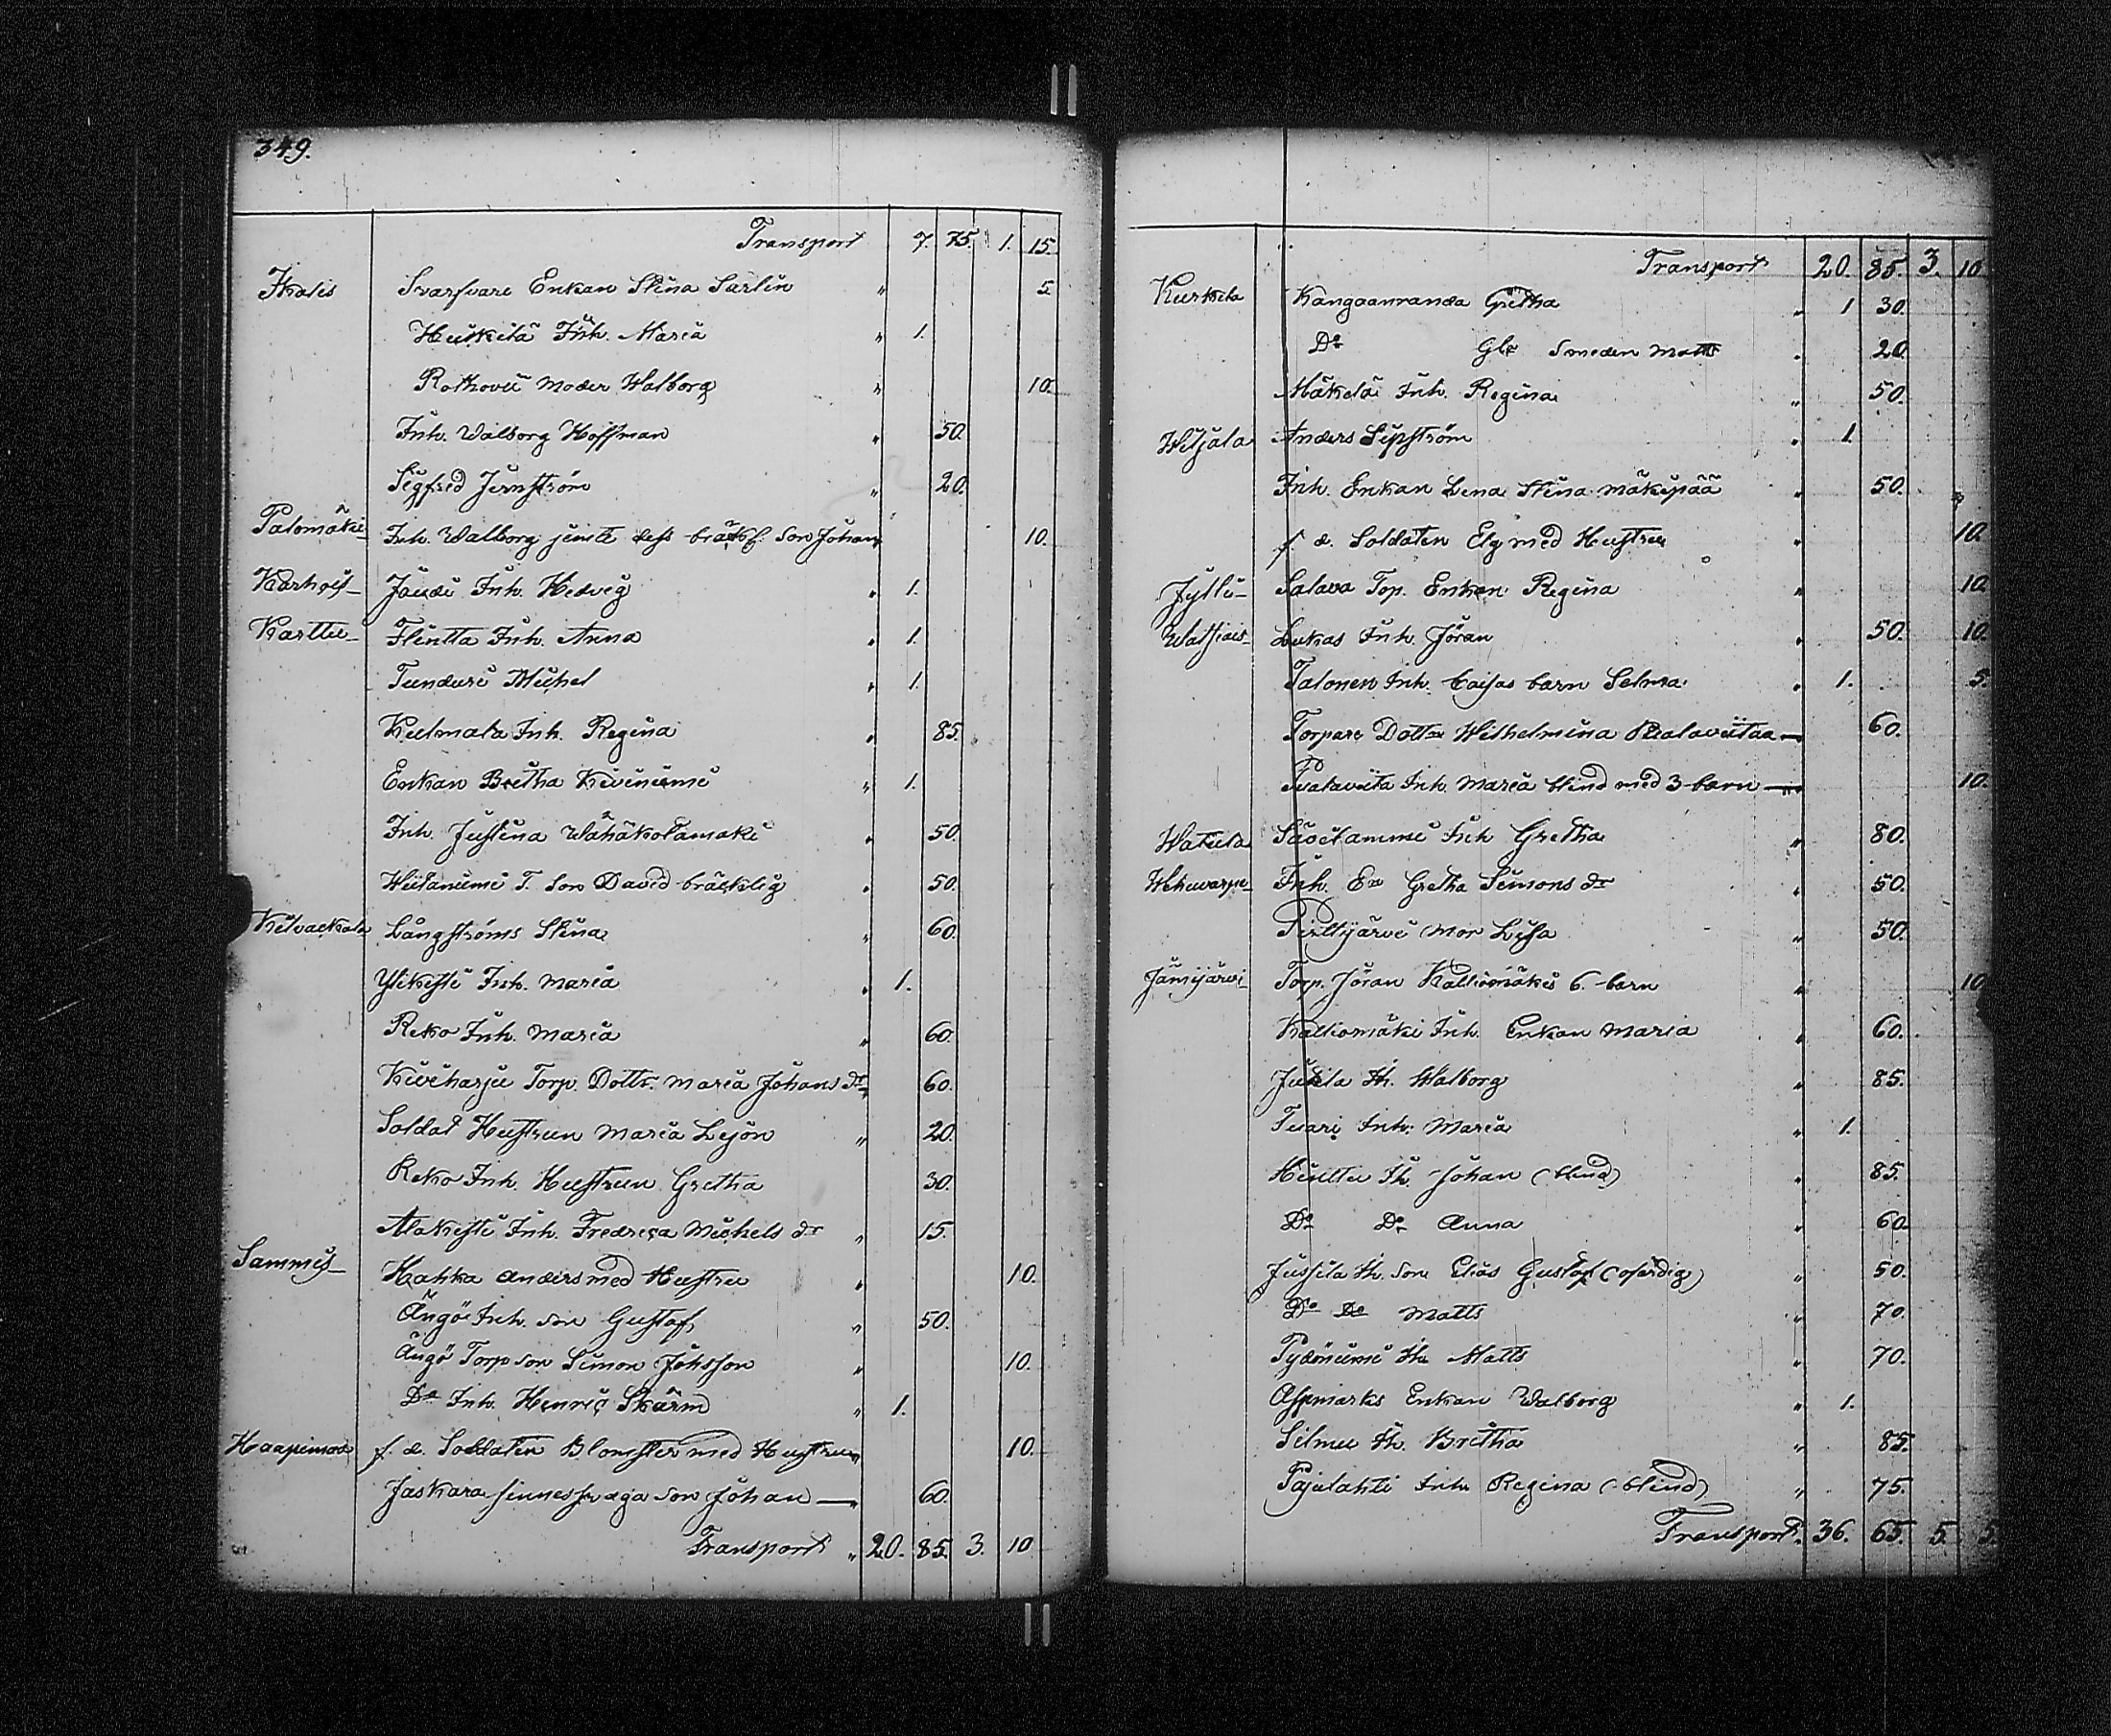 349.
Transport 7. 75. 1. 15.
Ikalis Svarfvare Enkan Stina Sarlin " 5
Heikkilä Inh. Maria " 1.
Rothovii moder Walborg " 10.
Inh. Walborg Hoffman " 50.
Sigfrid Jernström " 20.
Palomäki Inh. Walborg jemte dess son Johan 10.
Karhois Inh. Hedvig " 1.
Karttu Flintta Inh. Anna " 1.
Tunduri Michel " 1.
Kulmala Inh. Regina " 85.
Enkan Bretha Kiviniemi " 1.
Inh. Justina Wähäkotamäki " 50.
Wiitaniemi T. son David bräcklig " 50.
Kilvackala Långströms Stina " 60.
Ylikesti Inh. Maria " 1.
Reko Inh. Maria " 60.
Kiviharju Torp. Dottr. Maria Johans dr 60.
Soldat Hustrun Maria Lejon " 20.
Reko Inh. Hustrun Gretha 30.
Alakesti Inh. Fredrica Michels dr " 15.
Sammis Hahka Anders med Hustru " 10.
Ängö Inh. son Gustaf " 50.
Ängö Torp son Simon Johsson " 10.
Do Inh. Henric Skärm " 1.
Haapimaa f. d. Soldaten Blomster med Hustrun " 10.
Jaskara sinnessvaga son Johan — 60.
Transport " 20. 85. 3. 10
Transport 20. 85. 3. 10
Kurkela Kangaanranda Gretha " 1 30.
Do Gla Smeden Matts " 20
Mäkelä Inh. Regina " 50.
Wiljala Anders Sipström " 1.
Inh. Enkan Lena Stina Mäkipää " 50.
f. d. Soldaten Elg med Hustru " 10
Jylli Salava Torp. Enkan Regina " 10
Watsiais Lukas Inh. Jöran " 50. 10.
Talonen Inh. Caisas barn Selma " 1. 5.
Torpare Dottr Wilhelmina — 60.
Inh. Maria blind med 3 barn — 10.
Watula Savilammi Inh Gretha " 80.
Wehuvarpe Inh. En Gretha Simons dr 50.
Pirttijärvi mor Lisa " 50.
Jämijärvi Torp. Jöran Kalliomäkis 6. barn " 10
Kalliomäki Inh. Enkan Maria " 60.
Jukila Ih. Walborg " 85.
Tuari Inh. Maria " 1.
Ih. Johan (blind) " 85.
Do Do Anna " 60
Jussila Ih. son Elias Gustaf (ofärdig) " 50.
Do Do Matts " 70.
Ih Matts " 70.
Aspmarks Enkan Walborg " 1.
Silmu Ih. Bretha " 85.
Pajulahti Inh Regina (blind) " 75.
Transport. 36. 65. 5. 5.